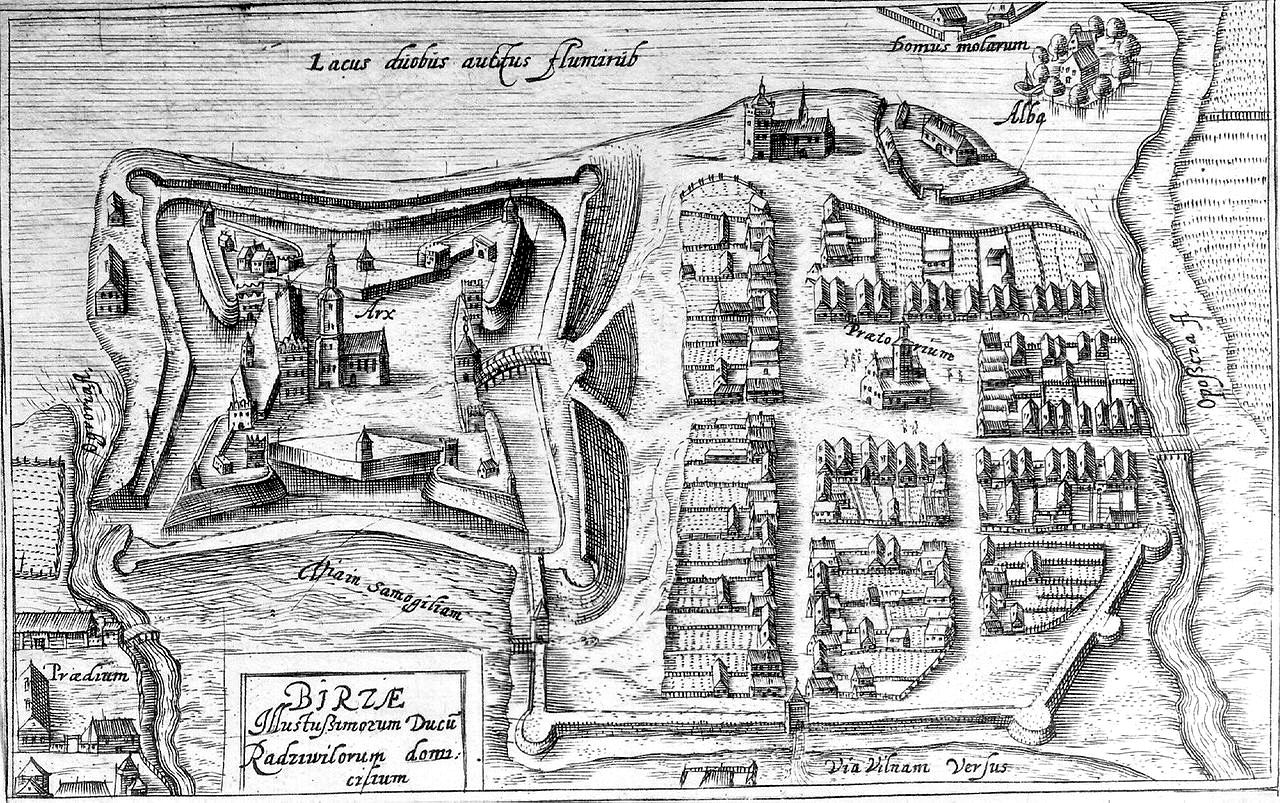 Lacus duobus auctus fluminũb
Domus molarum
Alba
Arx
Prætorium
Via in Samogitiam
Prædium
BIRZÆ
Illustussimorum Ducũ
Radziwilorum domi:
cilium
Via Vilnam Versus